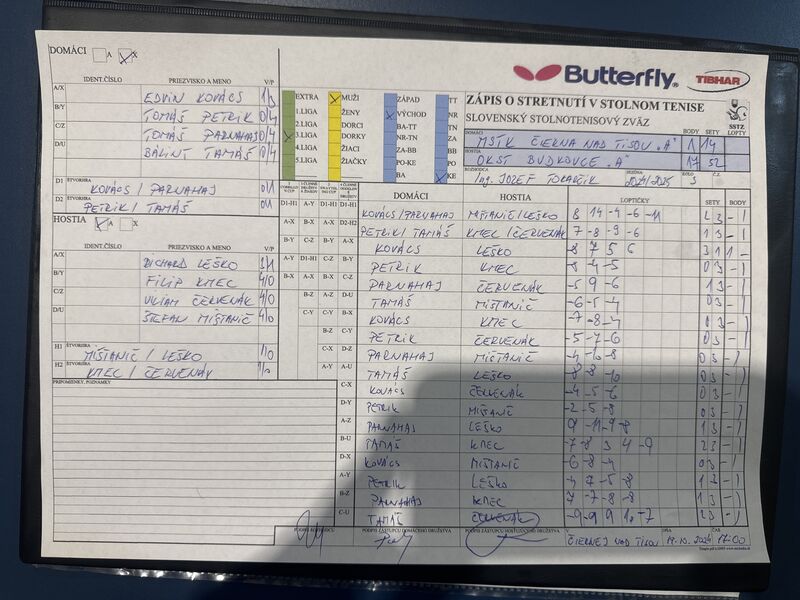 DOMÁCI A X
IDENT.ČÍSLO PRIEZVISKO A MENO V/P
A/X EDVIN KOVÁCS 1/3
B/Y TOMÁŠ PETRIK 0/4
C/Z TOMÁŠ PARNAHAJ 0/4
D/U BÁLINT TAMÁŠ 0/4
D1 ŠTVORHRA KOVÁCS / PARNAHAJ 0/1
D2 ŠTVORHRA PETRIK / TAMÁŠ 0/1
HOSTIA A X
IDENT.ČÍSLO PRIEZVISKO A MENO V/P
A/X RICHARD LEŠKO 3/1
B/Y FILIP KMEC 4/0
C/Z VILIAM ČERVENÁK 4/0
D/U ŠTEFAN MIŠTANIČ 4/0
H1 ŠTVORHRA MIŠTANIČ / LEŠKO 1/0
H2 ŠTVORHRA KMEC / ČERVENÁK 1/0
PRIPOMIENKY, POZNÁMKY
Butterfly TIBHAR
EXTRA MUŽI ZÁPAD TT
1.LIGA ŽENY VÝCHOD NR
2.LIGA DORCI BA-TT TN
3.LIGA DORKY NR-TN ZA
4.LIGA ŽIACI ZA-BB BB
5.LIGA ŽIAČKY PO-KE PO
BA KE
ZÁPIS O STRETNUTÍ V STOLNOM TENISE
SLOVENSKÝ STOLNOTENISOVÝ ZVÄZ
SSTZ
DOMÁCI MSTK ČIERNA NAD TISOU "A" BODY 1 SETY 14 LOPTY
HOSTIA OKST BUDKOVCE "A" 17 52
ROZHODCA Ing. JOZEF TOKARČÍK 2024/2025 KOLO 3
DOMÁCI HOSTIA LOPTIČKY SETY BODY
KOVÁCS / PARNAHAJ MIŠTANIČ / LEŠKO 8 14 -4 -6 -11 2 3 - 1
PETRIK / TAMÁŠ KMEC / ČERVENÁK 7 -8 -9 -6 1 3 - 1
KOVÁCS LEŠKO -8 7 5 6 3 1 1 -
PETRIK KMEC -8 -4 -5 0 3 - 1
PARNAHAJ ČERVENÁK -5 9 -6 1 3 - 1
TAMÁŠ MIŠTANIČ -6 -5 -4 0 3 - 1
KOVÁCS KMEC -7 -8 -4 0 3 - 1
PETRIK ČERVENÁK -5 -7 -6 0 3 - 1
PARNAHAJ MIŠTANIČ -4 -6 -8 0 3 - 1
TAMÁŠ LEŠKO -8 -8 -10 0 3 - 1
KOVÁCS ČERVENÁK -4 -5 -6 0 3 - 1
PETRIK MIŠTANIČ -2 -5 -8 0 3 - 1
PARNAHAJ LEŠKO 9 -11 -9 -8 1 3 - 1
TAMÁŠ KMEC -7 -8 3 4 -9 2 3 - 1
KOVÁCS MIŠTANIČ -6 -8 -4 0 3 - 1
PETRIK LEŠKO -4 7 -5 -8 1 3 - 1
PARNAHAJ KMEC 7 -7 -8 -8 1 3 - 1
TAMÁŠ ČERVENÁK -9 -9 9 10 -7 2 3 - 1
PODPIS ZÁSTUPCU DOMÁCEHO DRUŽSTVA PODPIS ZÁSTUPCU HOSŤUJÚCEHO DRUŽSTVA V ČIERNEJ NAD TISOU DŇA 19.10.2024 ČAS 17:00